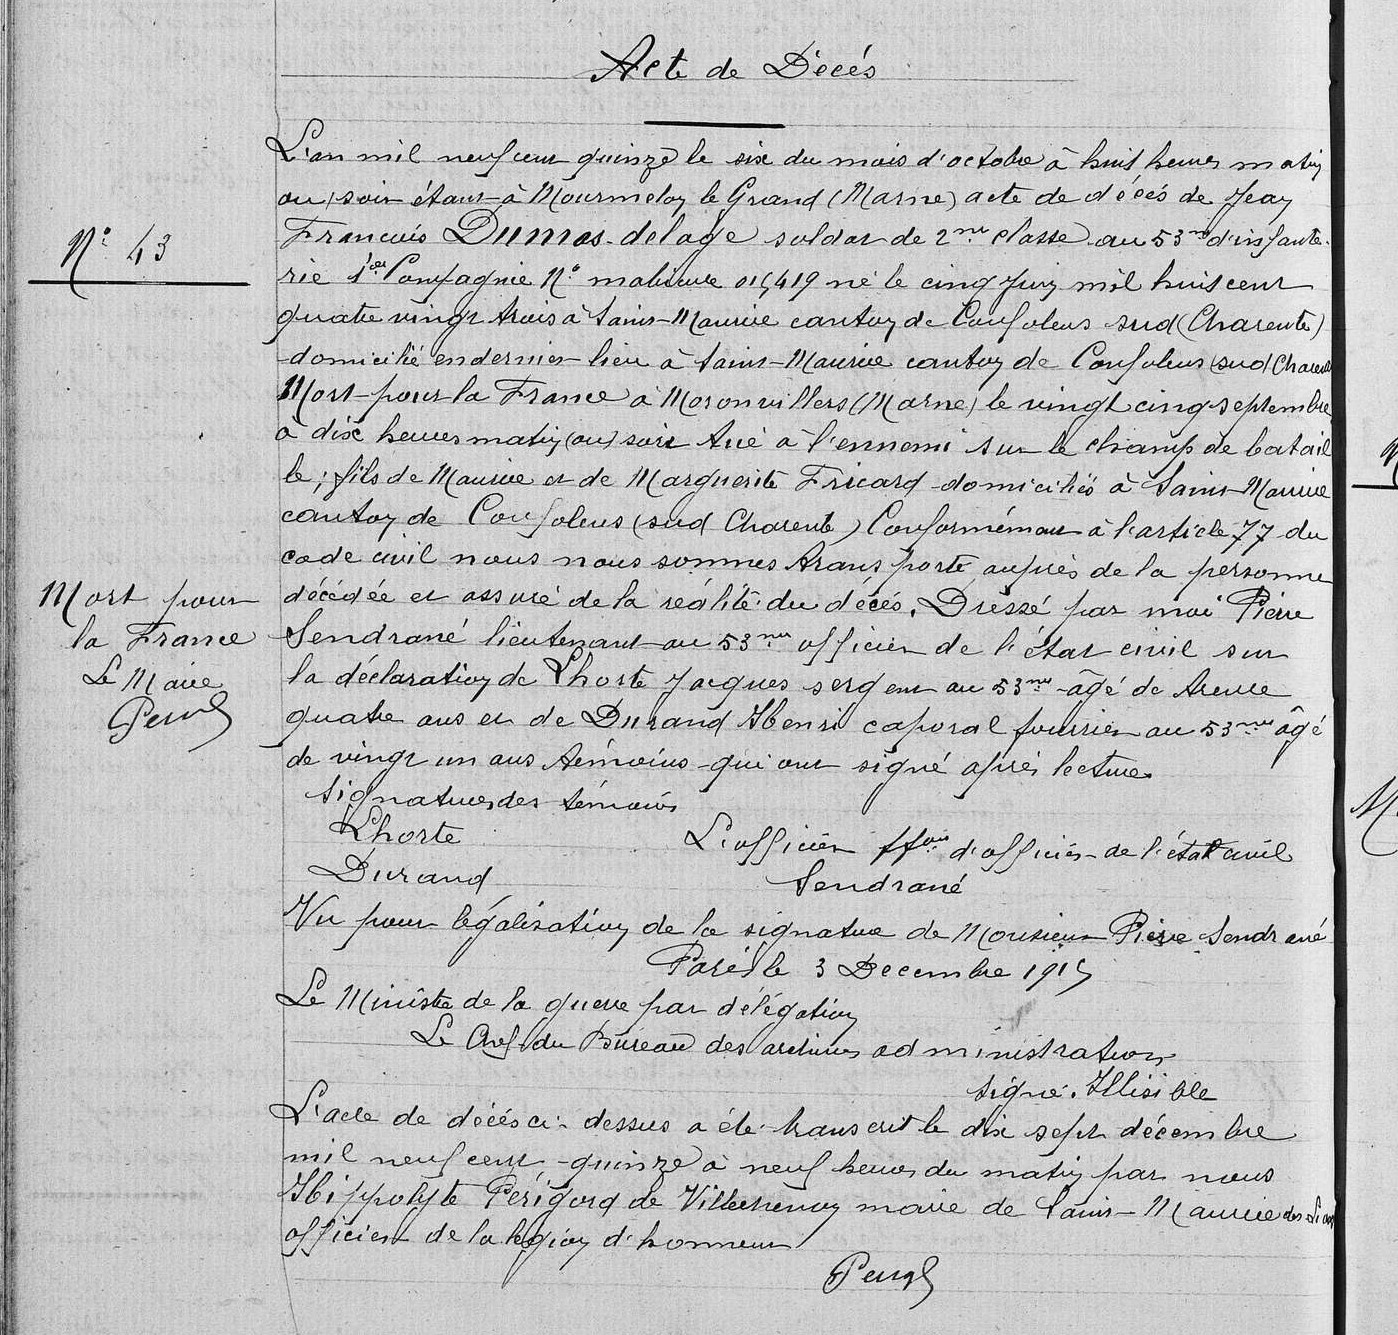 Acte de Décés
L'an mil neuf cent quinze le six du mois d'octobre à huit heures matin
ou soir étant à Mourmelon le Grand (Marne) acte de décés de Jean
N° 43
Francois Dumas-delage soldat de 2me classe au 53me d'infante-
rie 1ere Compagnie N° matricule 015419 né le cinq Juin mil huit cent
quatre vingt trois à Saint-Maurice canton de Confolens sud (Charente)
domicilié en dernier lieu à Saint-Maurice canton de Confolens (sud Charente
Mort pour la France à Moronvillers (Marne) le vingt cinq septembre
à dix heures matin (ou) soir tué à l'ennemi sur le champ de batail
le; fils de Maurice et de Marguerite Fricard domiciliés à Saint-Maurice
canton de Confolens (sud Charente) Conformément à l'article 77 du
code civil nous nous sommes transporté auprès de la personne
décédée et assuré de la réalité du décés. Dressé par moi Pierre
Sendrané lieutenant au 53me officier de l'état civil sur
la déclaration de Lhorte Jacques sergent au 53me âgé de trente
quatre ans et de Durand Henri caporal fourrier au 53me âgé
de vingt un ans témoins qui ont signé après lecture
Mort pour
la France
Le Maire
signatures des témoins
Lhorte
Durand
L'officier ffons d'officier de l'état civil
Sendrané
Vu pour légalisation de la signature de Monsieur Pierre Sendrané
Paris le 3 Decembre 1915
Le Ministre de la guerre par délégation
Le Chef du Bureau des archives administration
signé. Illisible
L'acte de décés ci-dessus a été transcrit le dix sept décembre
mil neuf cent quinze à neuf heures du matin par nous
Hippolyte Périgord de Villechenon maire de Saint-Maurice des Lions
officier de la légion d'honneur